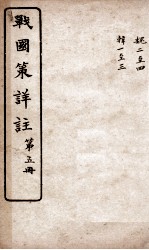 戰國策詳註
第五冊
魏二至四
韓一至三